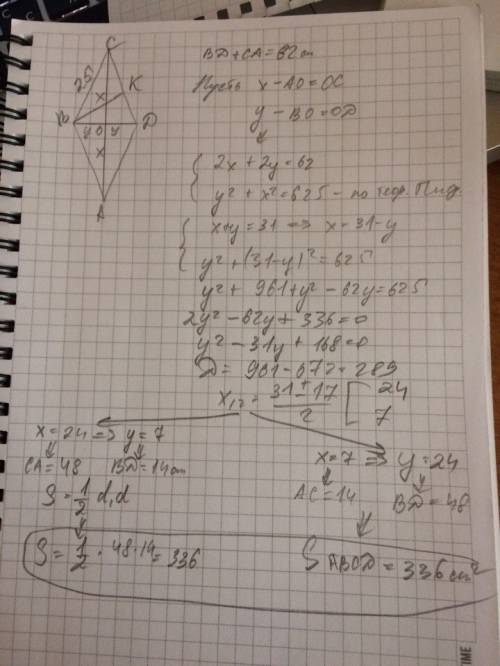 C
25
x
K
B
y O y
D
x
A
BD + CA = 62 cm
Пусть x - AO = OC
y - BO = OD
2x + 2y = 62
y² + x² = 625 - по теор. Пиф.
x + y = 31 => x = 31 - y
y² + (31 - y)² = 625
y² + 961 + y² - 62y = 625
2y² - 62y + 336 = 0
y² - 31y + 168 = 0
D = 961 - 672 = 289
x₁,₂ = (31 ± 17)/2 [ 24
7
x = 24 => y = 7
CA = 48 BD = 14 cm
S = 1/2 d₁d
S = 1/2 · 48 · 14 = 336
x = 7 => y = 24
AC = 14 BD = 48
S ABOD = 336 cm²
TIME